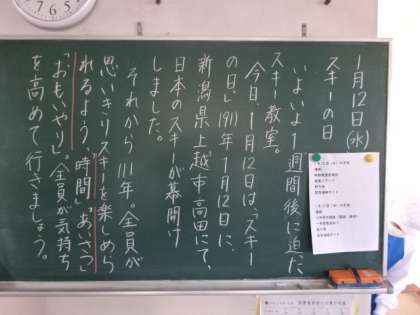 1月12日(水)
スキーの日
いよいよ1週間後に迫った
スキー教室。
今日、1月12日は、「スキー
の日」。1911年1月12日に、
新潟県上越市高田にて、
日本のスキーが幕開け
しました。
それから111年。全員が
思いきりスキーを楽しめら
れるよう、「時間」「あいさつ」
「おもいやり」「全員が気持ち
を高めて行きましょう。